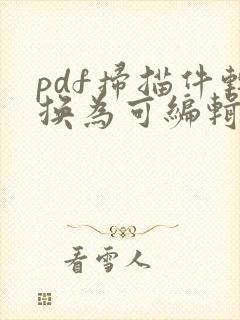 pdf掃描件轉
換為可編輯
看雪人